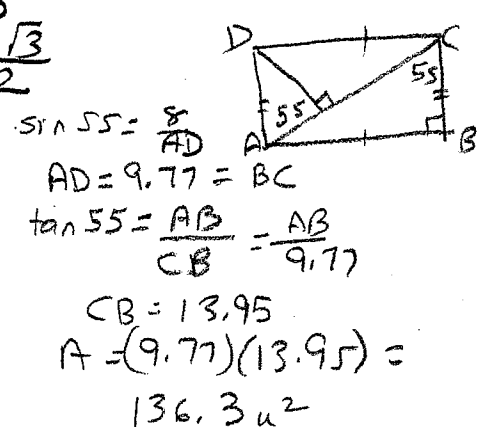 √3
2
D C
55 55
A B
sin 55 = 8/AD
AD = 9.77 = BC
tan 55 = AB/CB = AB/9.77
CB = 13.95
A = (9.77)(13.95) =
136.3 u²